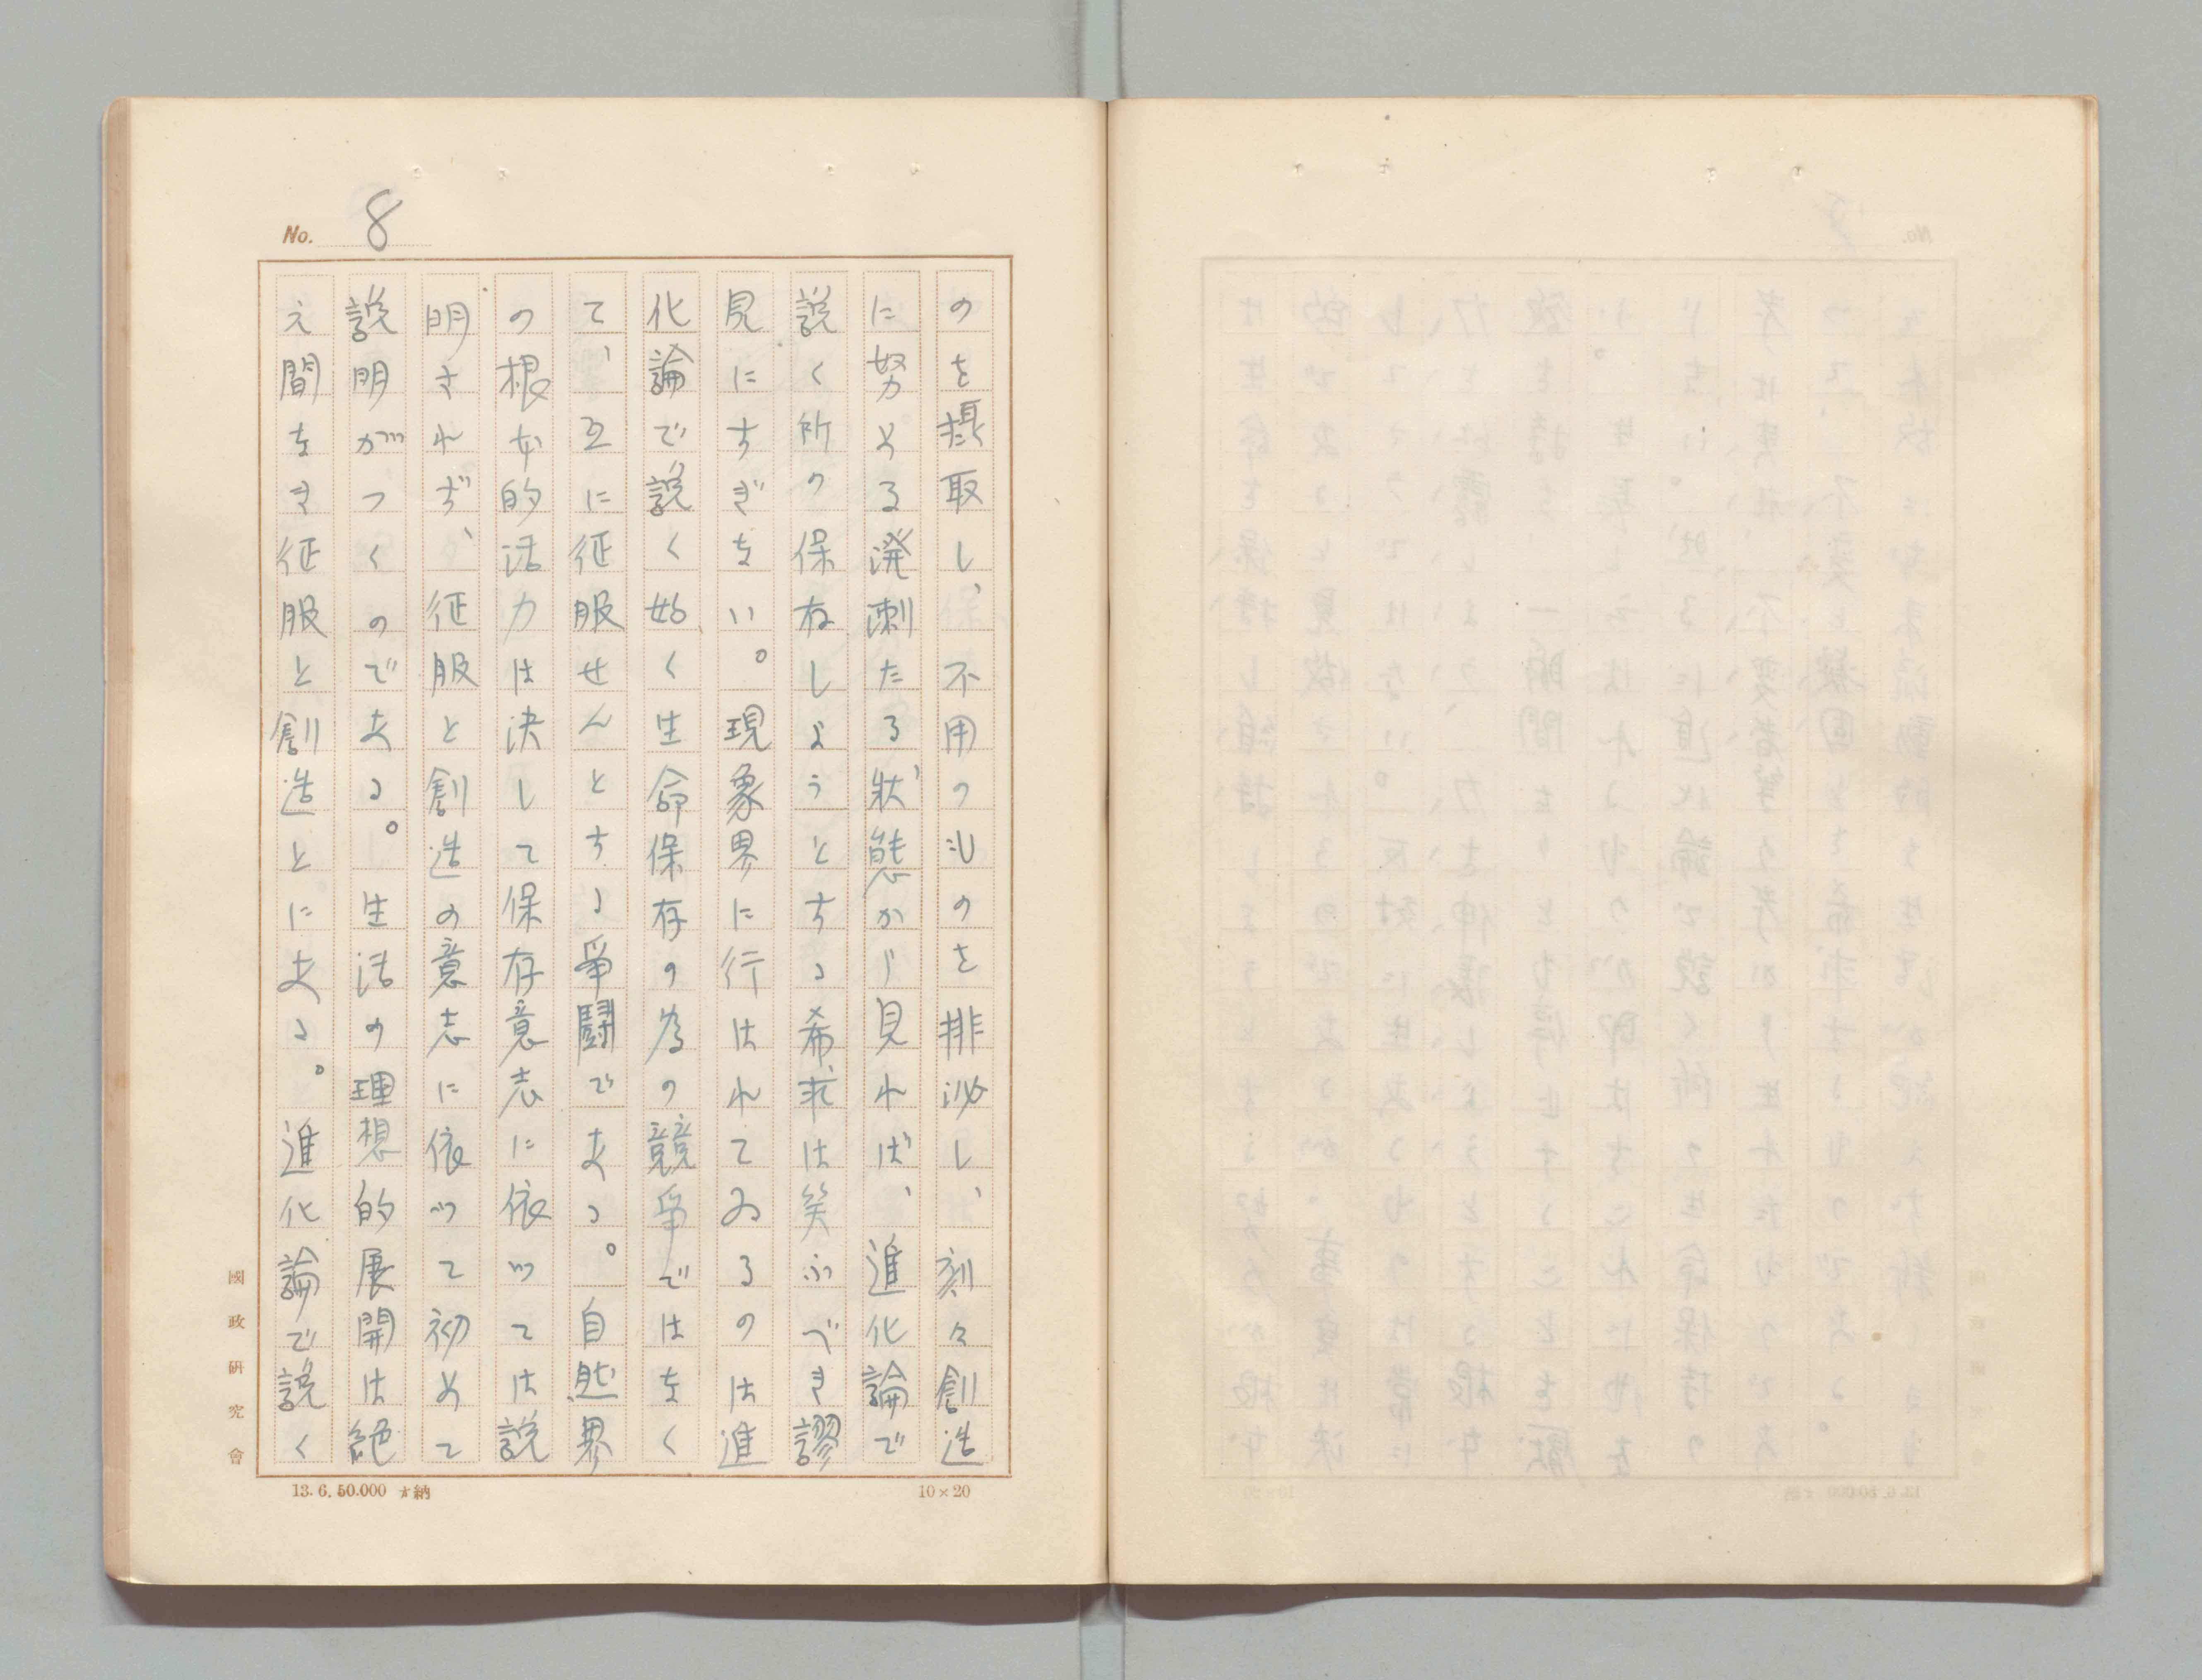 No. 8
のを攝取し、不用のものを排泌し、刻々創造
に努める溌剌たる狀態から見れば、進化論で
説く所の保存しようとする希求は笑ふべき謬
見にすぎない。現象界に行はれてゐるのは進
化論で説く如く生命保存の為の競爭ではなく
て、互に征服せんとする爭闘である。自然界
の根本的活力は決して保存意志に依つては説
明されず、征服と創造の意志に依つて初めて
説明がつくのである。生活の理想的展開は絶
え間なき征服と創造とにある。進化論で説く
國政研究會
13.6.50.000 納
10×20